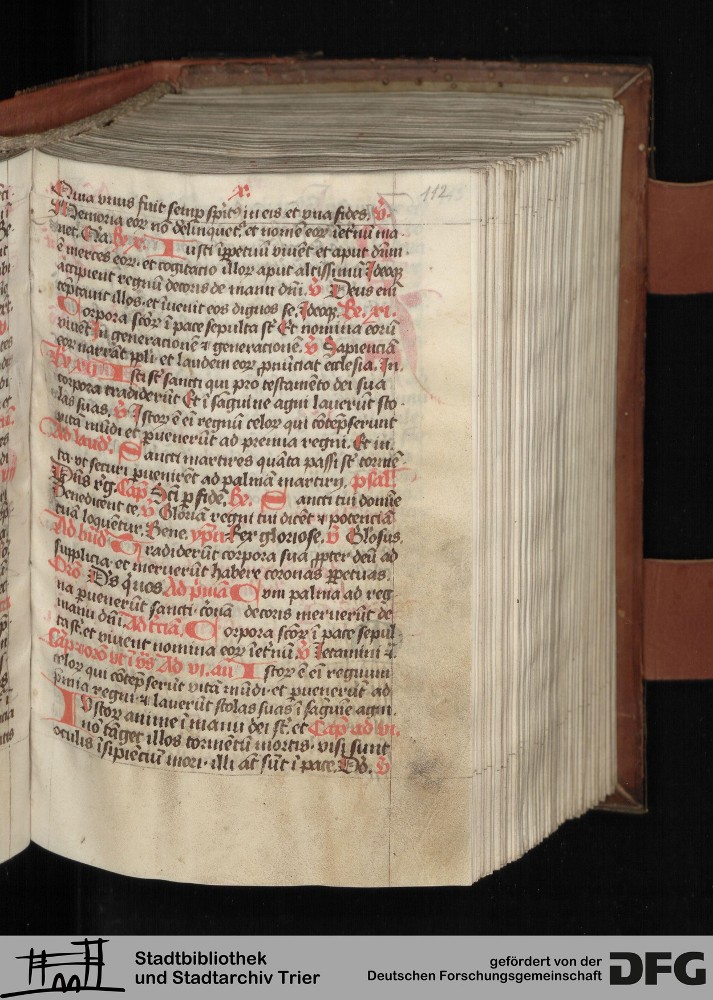 x.
112
Quia unus fuit semp sp̄us in eis et una fides. ℣.
Memoria eoꝝ nō delinquet, et nomē eoꝝ īet̄nū ma-
net. Re. x. Iusti īppetuū vivēt et aput dn̄m
ē merces eoꝝ. et cogitacio illoꝝ aput altissimū Ideoqꝫ
accipient regnū decoris de manu dn̄i. ℣ Deus em̄
tēptavit illos. et īvenit eos dignos se. Ideoqꝫ. Re. xi.
Corpora sc̄oꝝ ī pace sepulta st̄ Et nomina eorū
vivēt In generacionē ⁊ generacionē. ℣ Sapienciā
eoꝝ narrāt ppl̄i et laudem eoꝝ ꝓnūciat ecclesia. In.
Re xij Isti st̄ sancti qui pro testamēto dei sua
corpora tradiderūt Et ī saguine agni laverūt sto-
las suas. ℣ Istoꝝ ē ei regnū celoꝝ qui cōtēpserunt
vitā mūdi et ꝑvenerūt ad premia regni. Et in.
Ad laud'. Sancti martires quāta passi st̄ tormē-
ta. vt securi ꝑvenirēt ad palmā martirij. psal'
Dn̄s rg̅. Cap̄ Sc̄i ꝑ fidē. Re. Sancti tui domīe
Benedicent te. ℣ Gloriam regni tui dicēt ⁊ potenciā
tuā loquētur. Bene. ypn̄ Rex gloriose. ℣ Gl'osus.
Ad bn̄d' Tradiderūt corpora sua ꝓpter deū ad
supplicia. et meruerūt habere coronas ꝑpetuas.
Oro Ds q̇ nos Ad p̄mā Cum palma ad reg-
na ꝑvenerūt sancti. coronā decoris meruerūt de
manu dn̄i Ad t̄ciā. Corpora sc̄oꝝ ī pace sepul
ta st̄. et vivent nomina eoꝝ īet̄nū. ℣ Letamini ⁊
Cap̄ ⁊ oro vt ī vs̄ Ad vi. an̄ Istoꝝ ē ei regnum
celoꝝ qui cōtēpserūt vitā mūdi. et ꝑvenerūt ad
p̄mia regni. ⁊ laverūt stolas suas ī saguīe agni.
Iustoꝝ anime ī manu dei st̄. et Cap̄ ad vi.
nō tāget illos tormētū mortis. visi sunt
oculis īsipiēciū mori. illi aūt sūt ī pace. Do. ℣
Stadtbibliothek
und Stadtarchiv Trier
gefördert von der
Deutschen Forschungsgemeinschaft
DFG